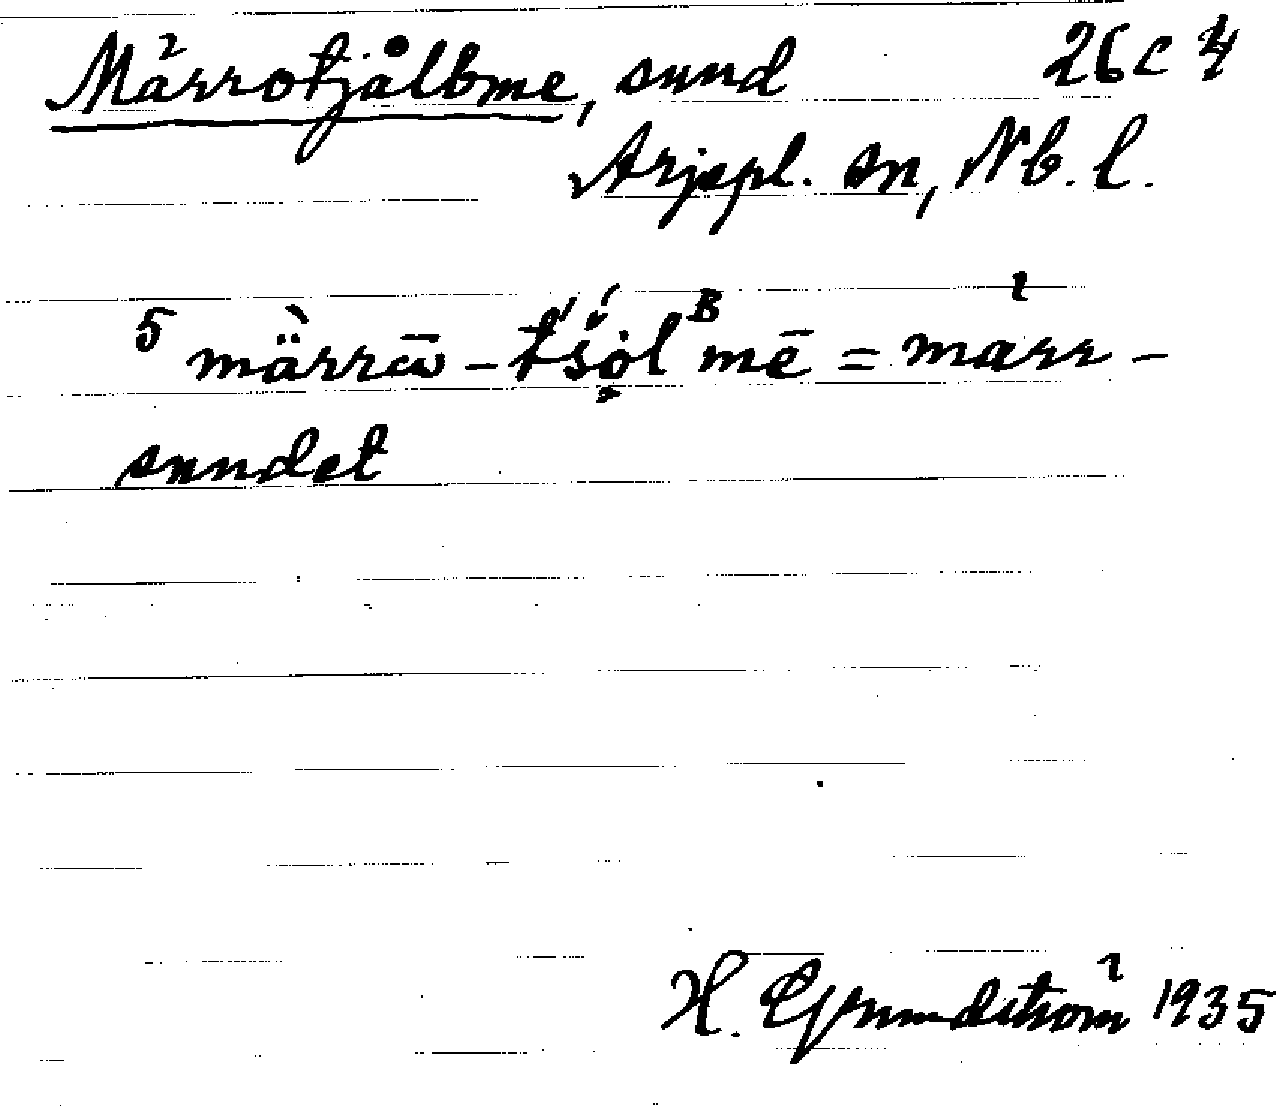 Märrotjålbme, sund 26 c 4
Arjepl. sn, Nb. l.
5 märrɑ̄-t́śǫ́lᴮmē = märr-
sundet
H. Grundström 1935